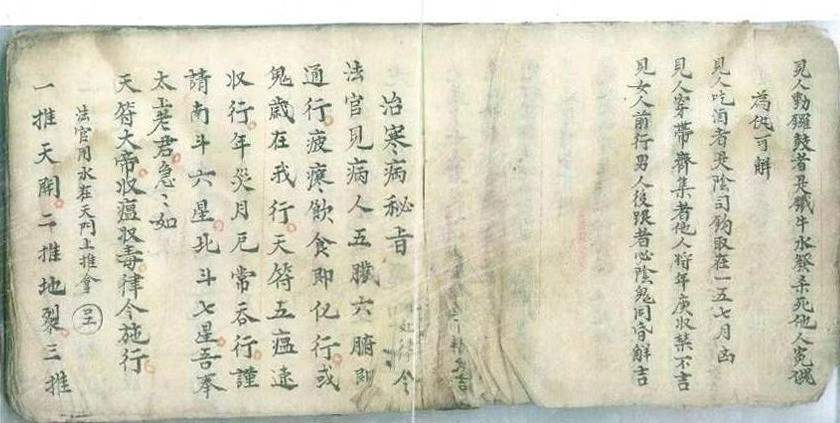 見人動鑼鼓者是鐵牛水祭杀死他人冤魂
為仇可解
見人吃酒者是陰司鈎取在一五七月凶
見人穿帶齊集者他人将年庚收禁不吉
見女人前行男人後跟者必陰鬼同昏解吉
治寒病秘旨
法官見病人五臟六腑即
通行疲寒飲食即化行或
鬼歲在我行天符五瘟速
収行年災月厄常吞行謹
請南斗六星北斗七星吾奉
太上老君急〻如
天符大帝收瘟収毒律令施行
法官用水在天門上推拿
一推天開二推地裂三推